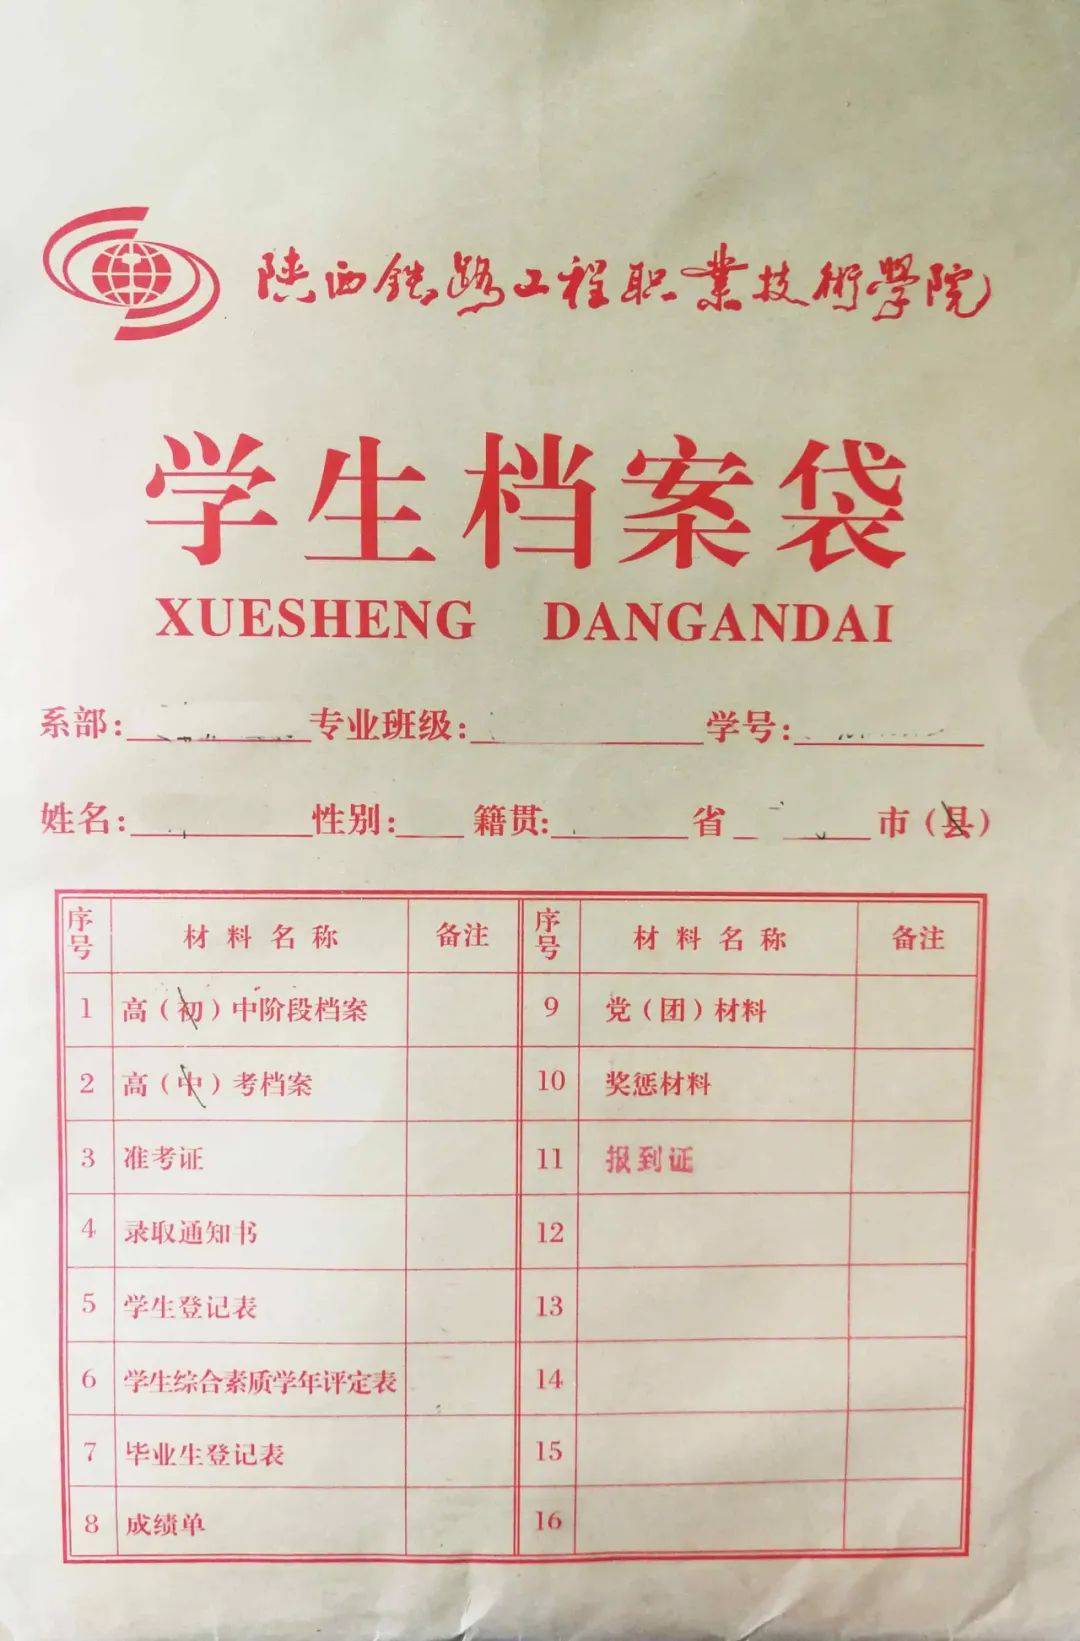 陕西铁路工程职业技術學院
学生档案袋
XUESHENG DANGANDAI
系部: 专业班级: 学号:
姓名: 性别: 籍贯: 省 市（县）
序号 材料名称 备注 序号 材料名称 备注
1 高（初）中阶段档案 9 党（团）材料
2 高（中）考档案 10 奖惩材料
3 准考证 11 报到证
4 录取通知书 12
5 学生登记表 13
6 学生综合素质学年评定表 14
7 毕业生登记表 15
8 成绩单 16